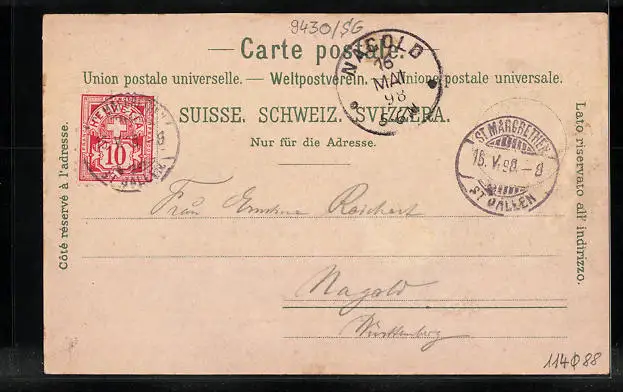 9430/SG
— Carte postale. —
Union postale universelle. — Weltpostverein. — Unione postale universale.
SUISSE. SCHWEIZ. SVIZZERA.
Nur für die Adresse.
Côté réservé à l'adresse.
Lato riservato all' indirizzo.
10
NAGOLD
16
MAI
98
5-6N
ST MARGRETHEN
16.V.98.-8
ST. GALLEN
Frau Reichert
Nagold
Württemberg
114Φ88